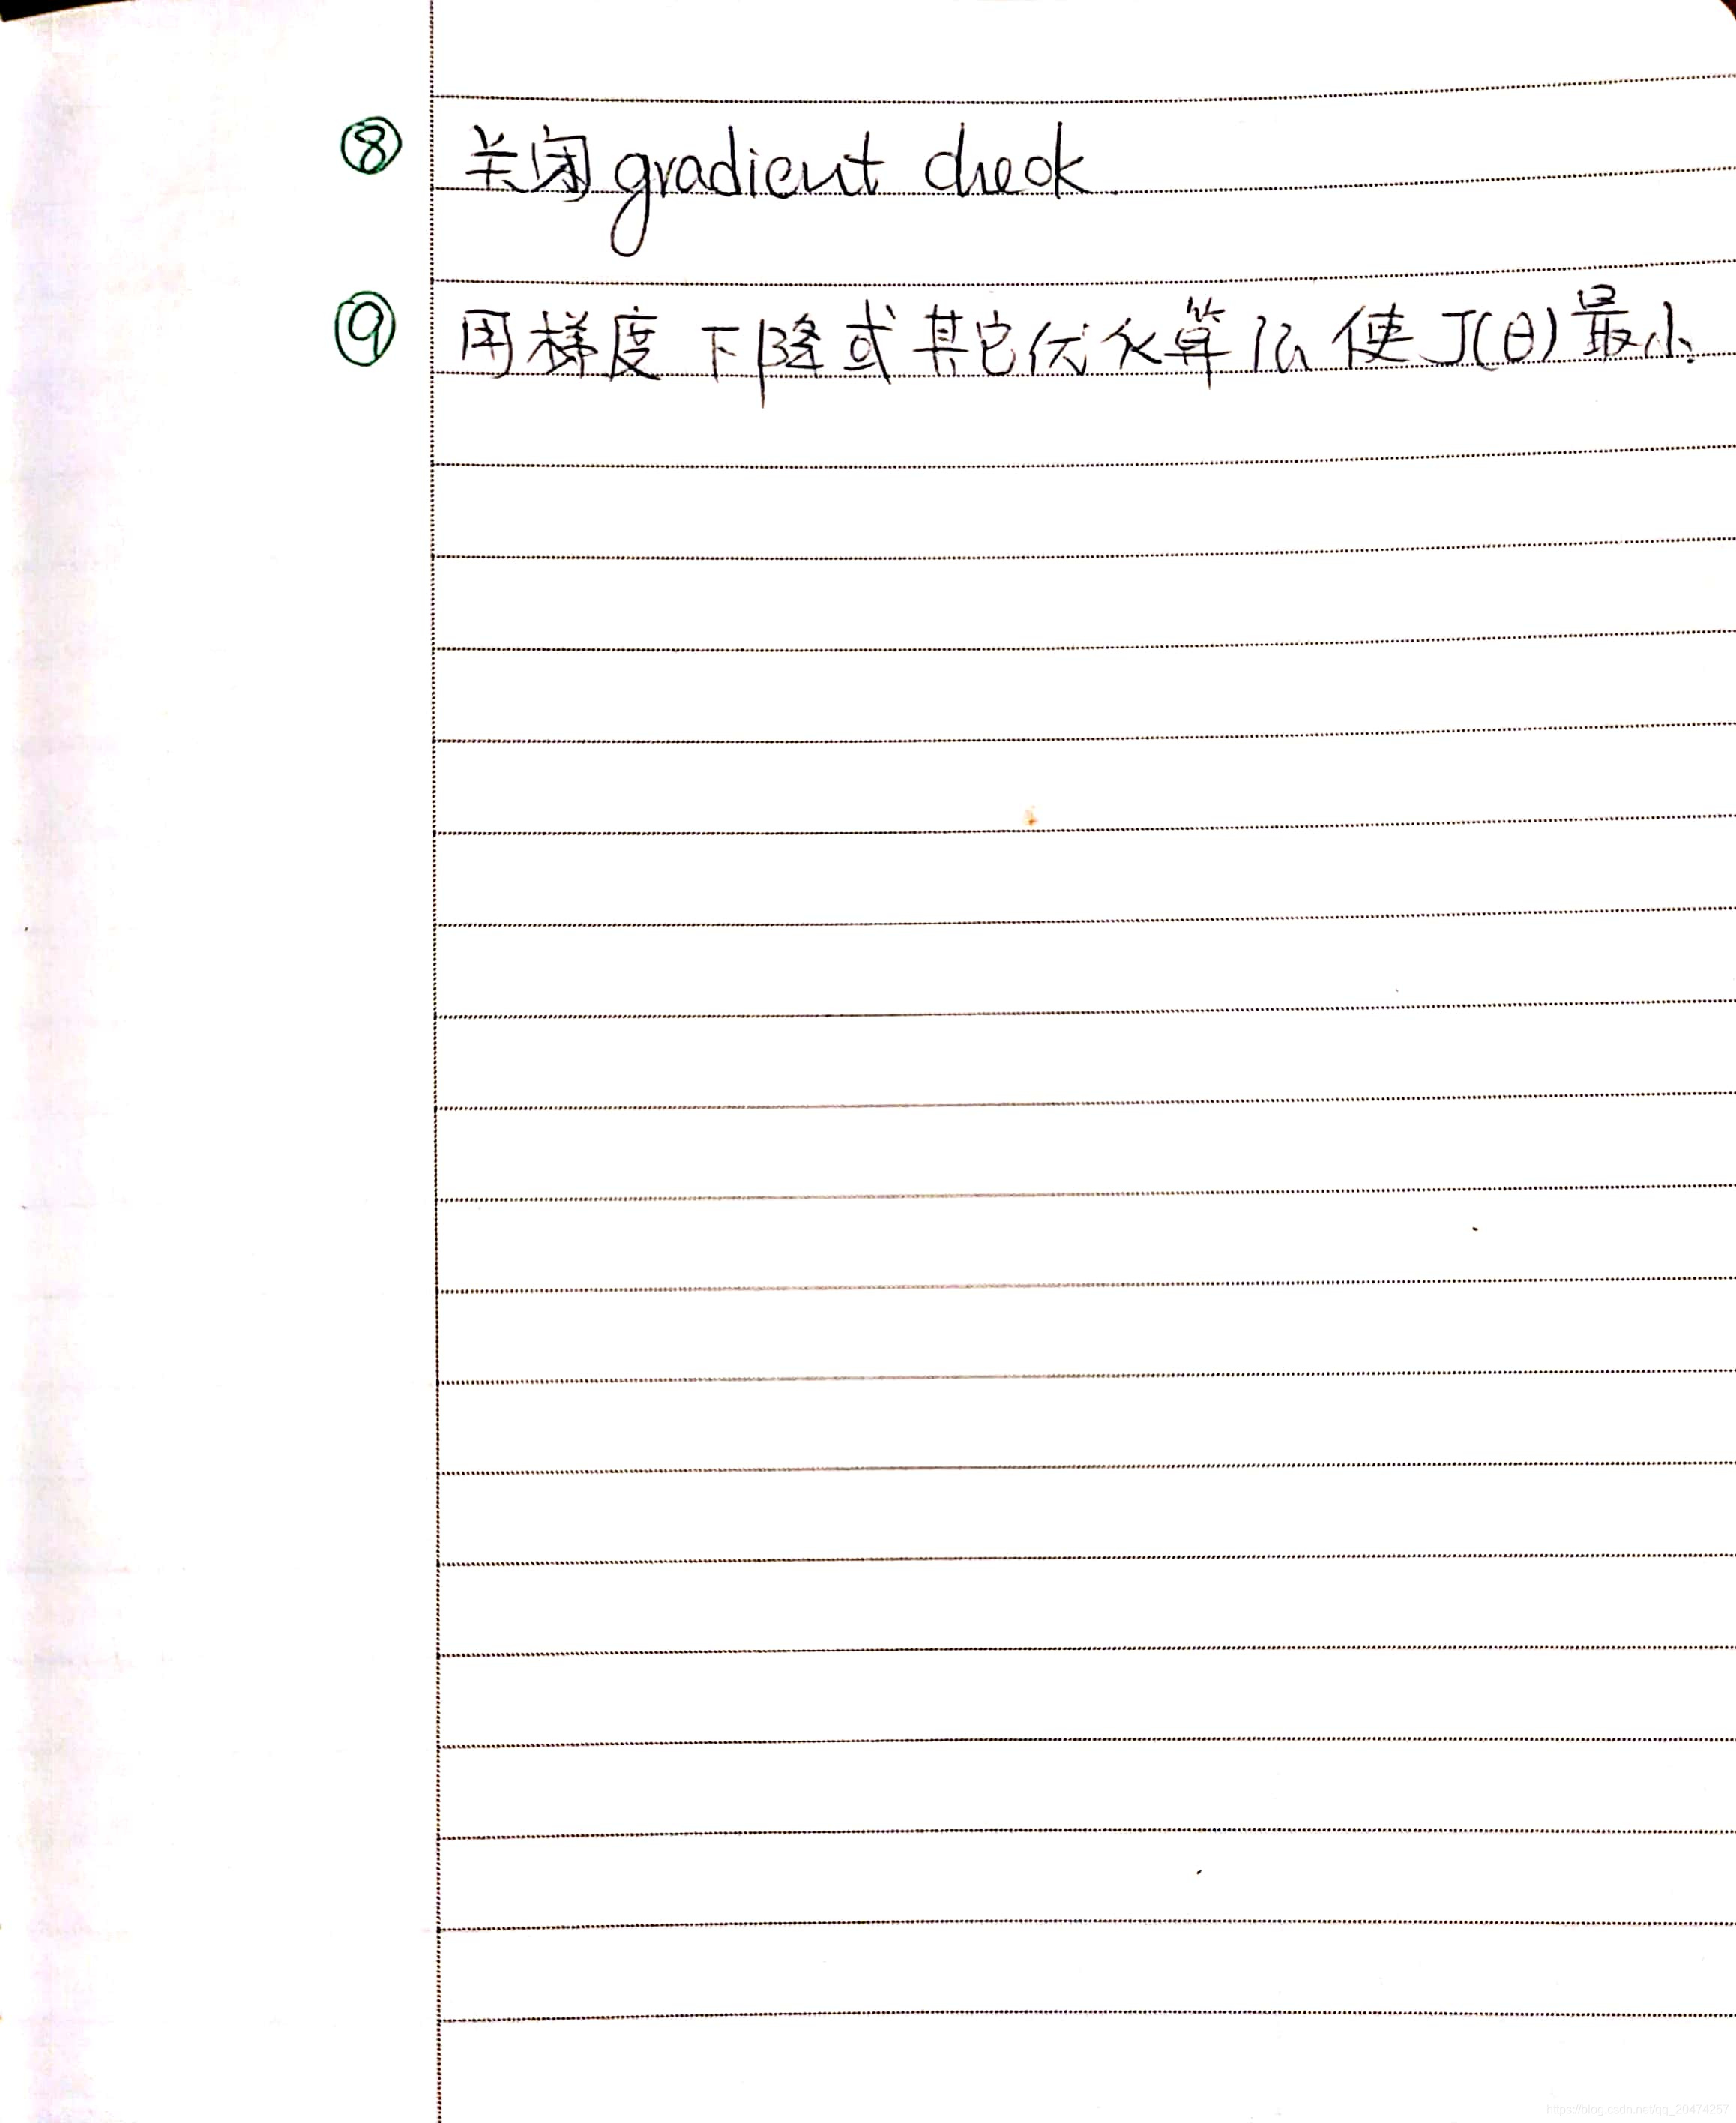 ⑧ 关闭 gradient check
⑨ 用梯度下降或其它优化算法使 J(θ) 最小.
https://blog.csdn.net/qq_20474257